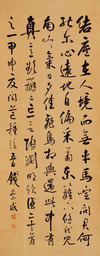 结廬在人境而無車馬喧问君何
能尔心遠地自偏采菊東籬下悠然見
南山山氣日夕佳飛鳥相與還此中有
真意欲辨已忘言陶渊明飲酒二十首
之一甲申 錢崇威